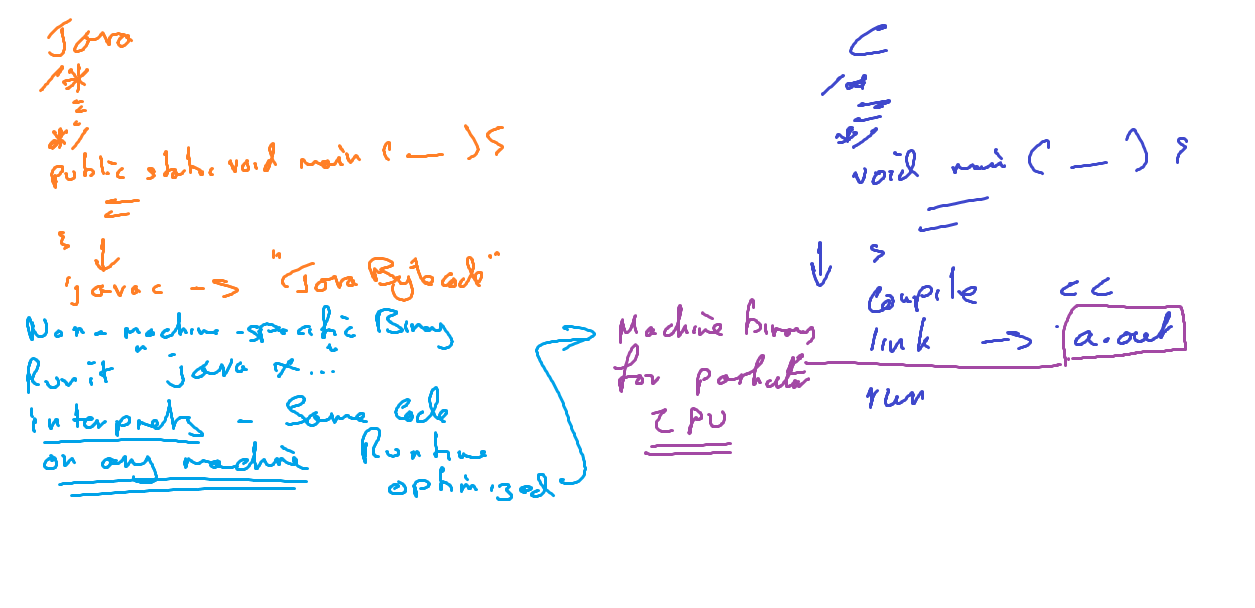 Java
/*
*/
public static void main ( — ) {
}
javac -> "Java Bytecode"
Non-machine-specific Binary
Run it "java x..."
Interprets - Same Code
on any machine
Runtime
optimized
Machine Binary
for particular
CPU
C
/*
*/
void main ( — ) {
}
compile cc
link -> a.out
run